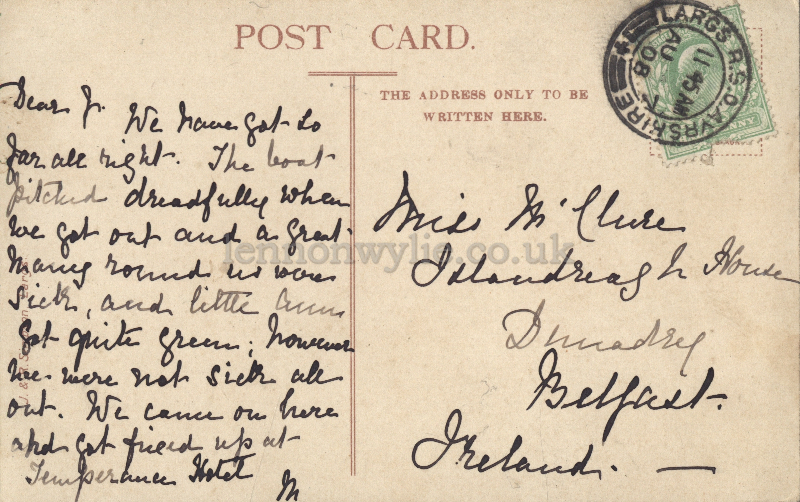 POST CARD.
THE ADDRESS ONLY TO BE
WRITTEN HERE.
LARGS R.S.O. AYRSHIRE
11 45 AM
AU
08
Dear J. We have got so
far all right. The boat
pitched dreadfully when
we got out and a great
many round us were
sick, and little Annie
got quite green; however
we were not sick all
out. We came on here
and got fixed up at
Temperance Hotel
M
Miss McClure
Islandreagh House
Dunadry
Belfast.
Ireland. —
lennonwylie.co.uk